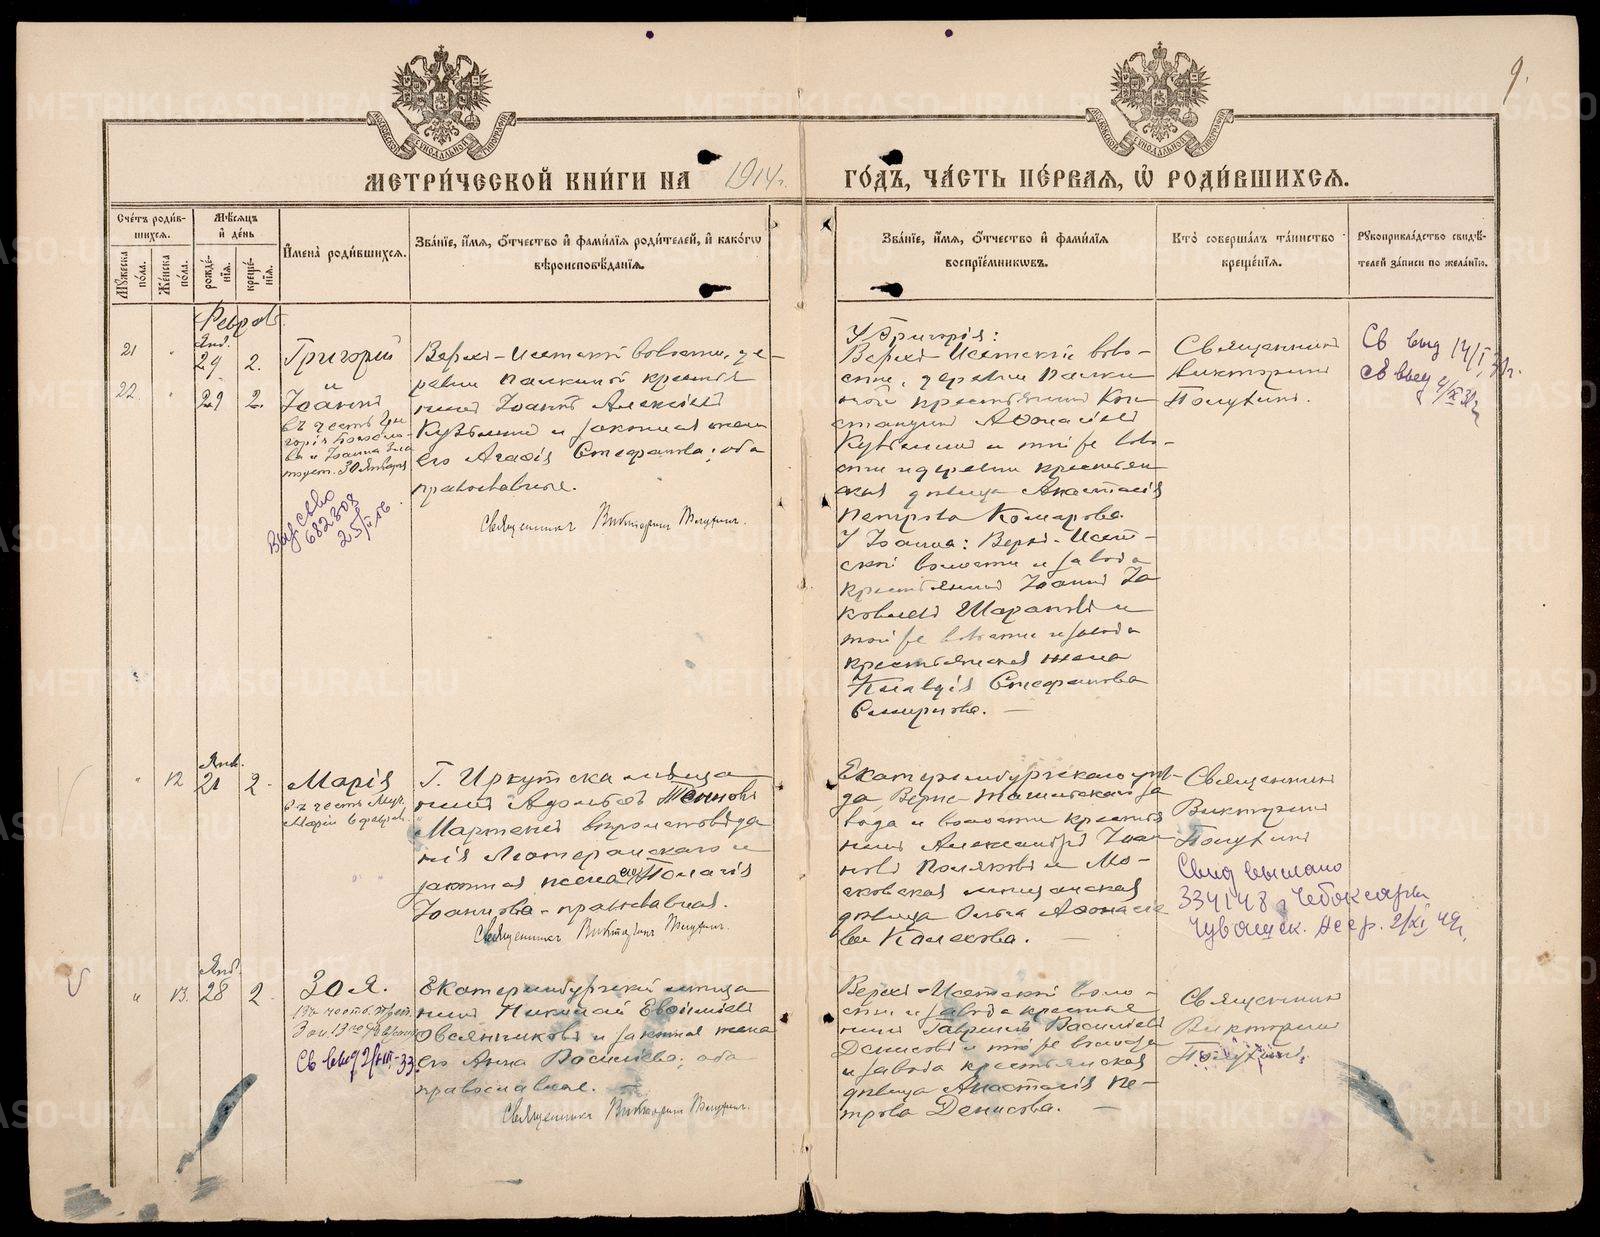 9.
МЕТРИ́ЧЕСКОЙ КНИ́ГИ НА 1914 г. ГО́ДЪ, ЧА́СТЬ ПЕ́РВАЯ, Ѡ҆ РОДИ́ВШИХСЯ.
Сче́тъ роди́в-
шихся.
Мꙋ́жеска
по́ла.
Же́нска
по́ла.
Мѣ́сяцъ
и҆ де́нь
рожде́-
нїя.
креще́-
нїя.
И҆мена̀ роди́вшихся.
Зва́нїе, и҆́мя, ѻ҆́тчество и҆ фами́лїя роди́телей, и҆ како́гѡ
вѣроисповѣ́данїя.
Зва́нїе, и҆́мя, ѻ҆́тчество и҆ фами́лїя
воспрїе́мникѡвъ.
Кто̀ соверша́лъ та́инство
креще́нїя.
Рꙋкоприкла́дство свидѣ́-
телей за́писи по жела́нїю.
Февраль
21 " Янв. 29 2. Григорій
22. " 29 2. и Іоаннъ
въ честь Гри-
горія Богосло-
ва и Іоанна Зла-
тоуст. 30 Января
682308
Верхъ-Исетской волости, де-
ревни Палкиной крестья-
нинъ Іоаннъ Алексѣевъ
Кузьминъ и законная жена
его Агафія Стефанова; оба
православные.
Священникъ Викторинъ
У Григорія:
Верхъ-Исетской воло-
сти, деревни Палки-
ной крестьянинъ Кон-
стантинъ Аѳанасьевъ
Кузьминъ и той же воло-
сти и деревни крестьян-
ская дѣвица Анастасія
Петрова Комарова.
У Іоанна: Верхъ-Исет-
ской волости и завода
крестьянинъ Іоаннъ Іа-
ковлевъ Шараповъ и
той же волости и завода
крестьянская жена
Клавдія Стефанова
Смирнова.
Священникъ
Викторинъ
Св выд 14/I 31 г.
Св выд
Янв.
" 12 21 2. Марія
въ честь Муч.
Маріи 6 февраля
Г. Иркутска мѣща-
нинъ Адольфъ
Мартенъ вѣроисповѣда-
нія Лютеранскаго и
законная жена его Пелагія
Іоаннова - православная.
Священникъ Викторинъ
Екатеринбургскаго уѣз-
да, Верхъ-Тагильскаго за-
вода и волости крестья-
нинъ Александръ Іоан-
новъ Поляковъ и Мо-
сковская мѣщанская
дѣвица Ольга Аѳанасіе-
ва Калехова.
Священникъ
Викторинъ
Свид выслано
334148 г Чебоксары
Чувашск. Асср. 2/XI 49 г.
Янв.
" 13. 28 2 Зоя.
въ честь
Зои 13 февраля
Св выд
Екатеринбургскій мѣща-
нинъ Николай Евѳиміевъ
Овсянниковъ и законная жена
его Анна Василіева; оба
православные.
Священникъ Викторинъ
Верхъ-Исетской воло-
сти и завода крестья-
нинъ Гавріилъ Василіевъ
Денисовъ и той же волости
и завода крестьянская
дѣвица Анастасія Пе-
трова Денисова.
Священникъ
Викторинъ